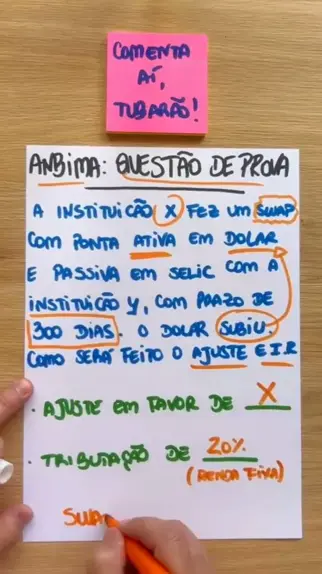 COMENTA
AÍ,
TUBARÃO!
ANBIMA: QUESTÃO DE PROVA
A INSTITUIÇÃO X FEZ UM SWAP
COM PONTA ATIVA EM DOLAR
E PASSIVA EM SELIC COM A
INSTITUIÇÃO Y, COM PRAZO DE
300 DIAS. O DOLAR SUBIU.
COMO SERÁ FEITO O AJUSTE E I.R
• AJUSTE EM FAVOR DE X
• TRIBUTAÇÃO DE 20%
(RENDA FIXA)
SWA